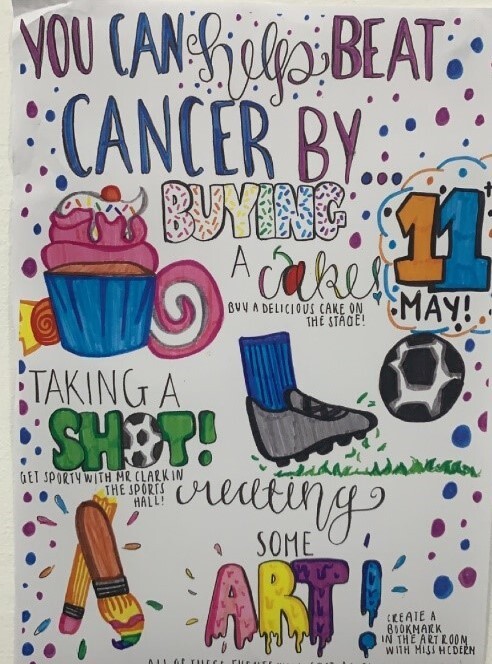 YOU CAN help BEAT
CANCER BY...
BUYING
A cake!
BUY A DELICIOUS CAKE ON
THE STAGE!
11th
MAY!
TAKING A
SHOT!
GET SPORTY WITH MR CLARK IN
THE SPORTS
HALL!
creating
SOME
ART!
CREATE A
BOOKMARK
IN THE ART ROOM
WITH MISS
ALL OF THESE EVENTS